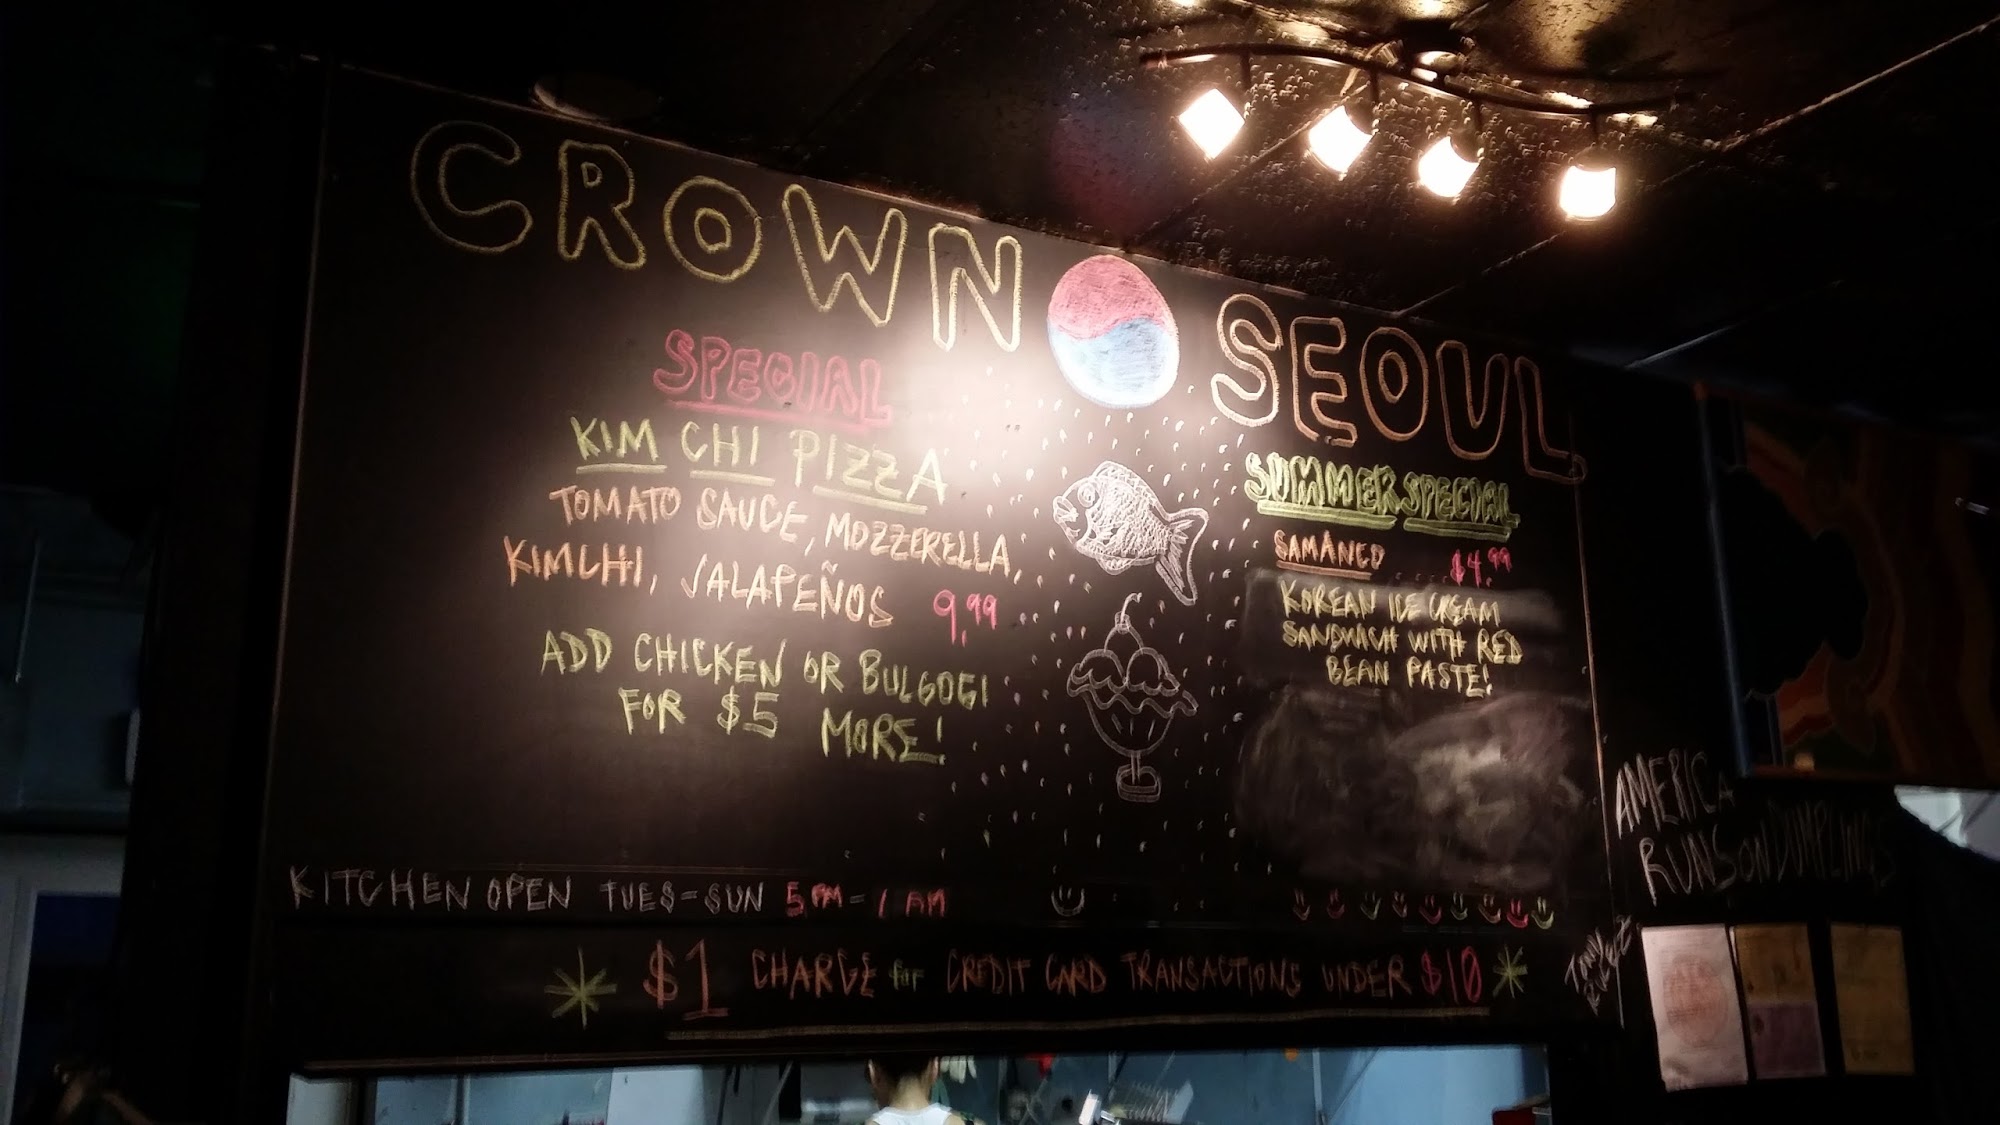 CROWN SEOUL
SPECIAL
KIM CHI PIZZA
TOMATO SAUCE, MOZZERELLA,
KIMCHI, JALAPEÑOS 9.99
ADD CHICKEN OR BULGOGI
FOR $5 MORE!
SUMMER SPECIAL
SAMANCO $4.99
KOREAN ICE CREAM
SANDWICH WITH RED
BEAN PASTE!
KITCHEN OPEN TUES-SUN 5 PM - 1 AM
$1 CHARGE for CREDIT CARD TRANSACTIONS UNDER $10
AMERICA
RUNS ON DUMPLINGS